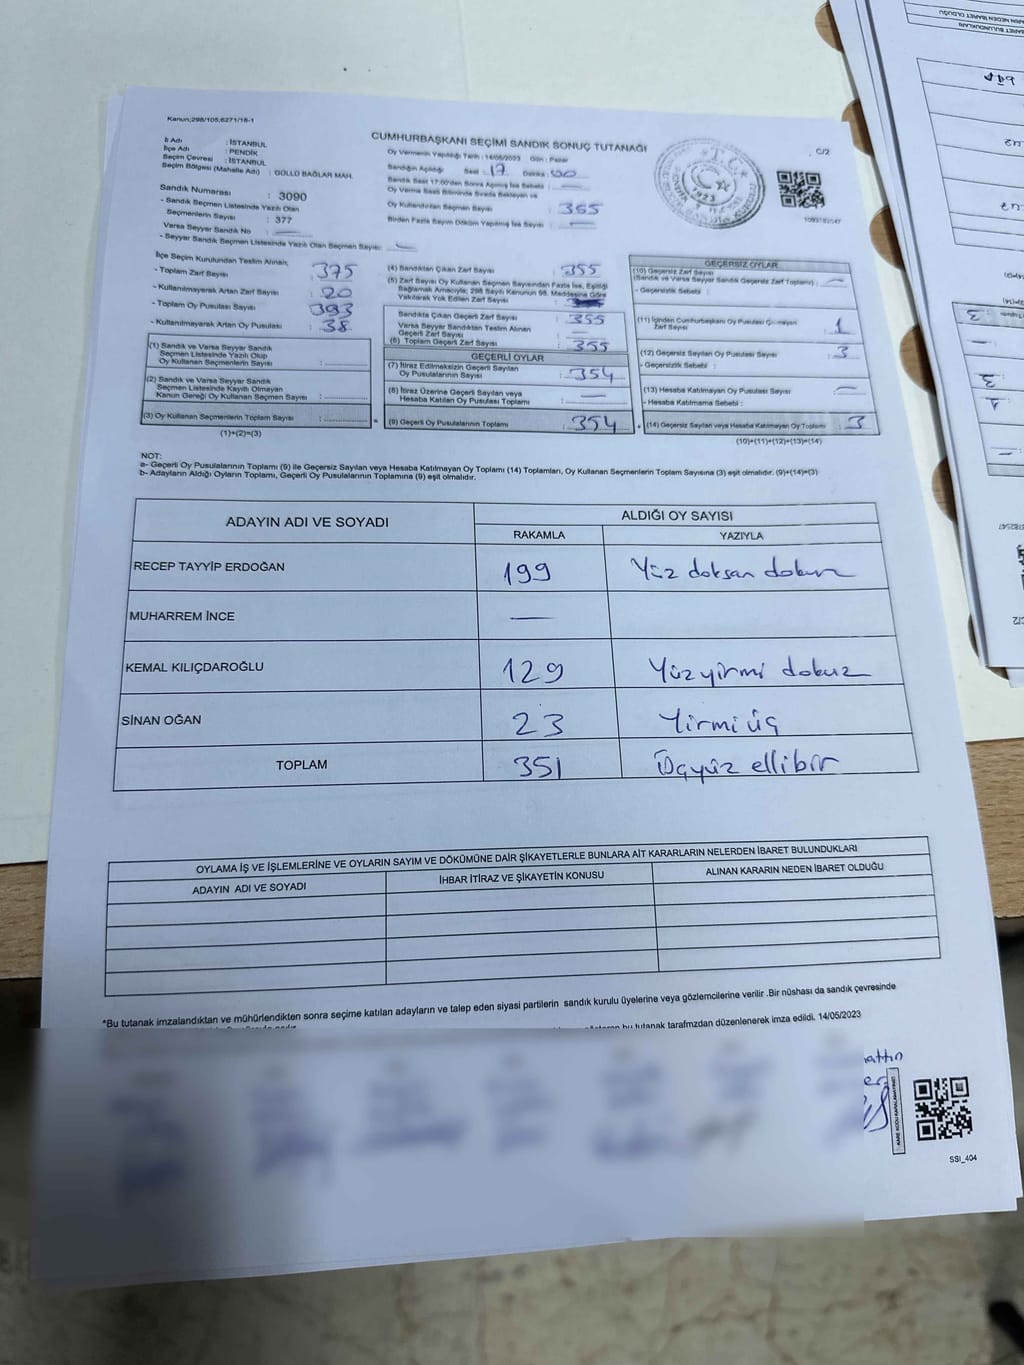 Kanun;298/105;6271/18-1
CUMHURBAŞKANI SEÇİMİ SANDIK SONUÇ TUTANAĞI
C/2
İl Adı : İSTANBUL
İlçe Adı : PENDİK
Seçim Çevresi : İSTANBUL
Seçim Bölgesi (Mahalle Adı) : GÜLLÜ BAĞLAR MAH.
Sandık Numarası : 3090
- Sandık Seçmen Listesinde Yazılı Olan
Seçmenlerin Sayısı : 377
Varsa Seyyar Sandık No : —
- Seyyar Sandık Seçmen Listesinde Yazılı Olan Seçmen Sayısı: —
Oy Vermenin Yapıldığı Tarih : 14/05/2023 Gün : Pazar
Sandığın Açıldığı Saat : 17 Dakika : 00
Sandık Saat 17:00'den Sonra Açılmış İse Sebebi : —
Oy Verme Saati Bitiminde Sırada Bekleyen ve
Oy Kullandırılan Seçmen Sayısı : 355
Birden Fazla Sayım Döküm Yapılmış İse Sayısı : —
İlçe Seçim Kurulundan Teslim Alınan;
- Toplam Zarf Sayısı : 375
- Kullanılmayarak Artan Zarf Sayısı : 20
- Toplam Oy Pusulası Sayısı : 393
- Kullanılmayarak Artan Oy Pusulası : 38
(1) Sandık ve Varsa Seyyar Sandık
Seçmen Listesinde Yazılı Olup
Oy Kullanan Seçmenlerin Sayısı :
(2) Sandık ve Varsa Seyyar Sandık
Seçmen Listesinde Kayıtlı Olmayan
Kanun Gereği Oy Kullanan Seçmen Sayısı :
(3) Oy Kullanan Seçmenlerin Toplam Sayısı :
(1)+(2)=(3)
(4) Sandıktan Çıkan Zarf Sayısı : 355
(5) Zarf Sayısı Oy Kullanan Seçmen Sayısından Fazla İse, Eşitliği
Sağlamak Amacıyla; 298 Sayılı Kanunun 98. Maddesine Göre
Yakılarak Yok Edilen Zarf Sayısı
Sandıkta Çıkan Geçerli Zarf Sayısı : 355
Varsa Seyyar Sandıktan Teslim Alınan
Geçerli Zarf Sayısı : —
(6) Toplam Geçerli Zarf Sayısı : 355
GEÇERLİ OYLAR
(7) İtiraz Edilmeksizin Geçerli Sayılan
Oy Pusulalarının Sayısı : 354
(8) İtiraz Üzerine Geçerli Sayılan veya
Hesaba Katılan Oy Pusulası Toplamı : —
(9) Geçerli Oy Pusulalarının Toplamı : 354
GEÇERSİZ OYLAR
(10) Geçersiz Zarf Sayısı
(Sandık ve Varsa Seyyar Sandık Geçersiz Zarf Toplamı) : —
- Geçersizlik Sebebi :
(11) İçinden Cumhurbaşkanı Oy Pusulası Çıkmayan
Zarf Sayısı : 1
(12) Geçersiz Sayılan Oy Pusulası Sayısı : 3
- Geçersizlik Sebebi :
(13) Hesaba Katılmayan Oy Pusulası Sayısı : —
- Hesaba Katılmama Sebebi :
(14) Geçersiz Sayılan veya Hesaba Katılmayan Oy Toplamı : 3
(10)+(11)+(12)+(13)=(14)
NOT:
a- Geçerli Oy Pusulalarının Toplamı (9) ile Geçersiz Sayılan veya Hesaba Katılmayan Oy Toplamı (14) Toplamları, Oy Kullanan Seçmenlerin Toplam Sayısına (3) eşit olmalıdır. (9)+(14)=(3)
b- Adayların Aldığı Oyların Toplamı, Geçerli Oy Pusulalarının Toplamına (9) eşit olmalıdır.
ADAYIN ADI VE SOYADI ALDIĞI OY SAYISI
RAKAMLA YAZIYLA
RECEP TAYYİP ERDOĞAN 199 Yüz doksan dokuz
MUHARREM İNCE —
KEMAL KILIÇDAROĞLU 129 Yüzyirmi dokuz
SİNAN OĞAN 23 Yirmi üç
TOPLAM 351 Üçyüz ellibir
OYLAMA İŞ VE İŞLEMLERİNE VE OYLARIN SAYIM VE DÖKÜMÜNE DAİR ŞİKAYETLERLE BUNLARA AİT KARARLARIN NELERDEN İBARET BULUNDUKLARI
ADAYIN ADI VE SOYADI İHBAR İTİRAZ VE ŞİKAYETİN KONUSU ALINAN KARARIN NEDEN İBARET OLDUĞU
*Bu tutanak imzalandıktan ve mühürlendikten sonra seçime katılan adayların ve talep eden siyasi partilerin sandık kurulu üyelerine veya gözlemcilerine verilir .Bir nüshası da sandık çevresinde
bu tutanak tarafımızdan düzenlenerek imza edildi. 14/05/2023
KARE KODU KARALAMAYINIZ!
SSI_404